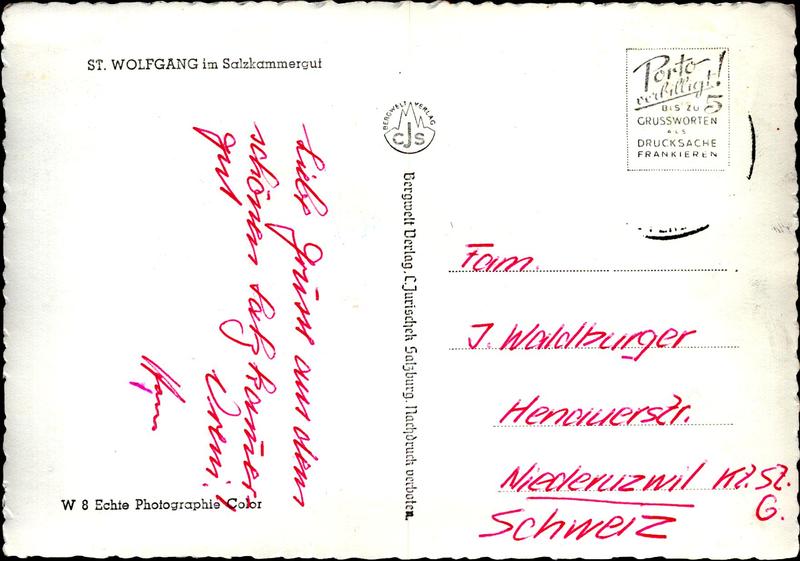 ST. WOLFGANG im Salzkammergut
Liebe Grüsse aus dem
schönen Salzkammer
gut
Vreni!
W 8 Echte Photographie Color
BERGWELT VERLAG
CJS
Bergwelt Verlag, C. Jurischek Salzburg. Nachdruck verboten.
Porto
verbilligt!
BIS ZU 5
GRUSSWORTEN
ALS
DRUCKSACHE
FRANKIEREN
Fam.
J. Waldburger
Henauerstr.
Niederuzwil Kt. St.
G.
Schweiz